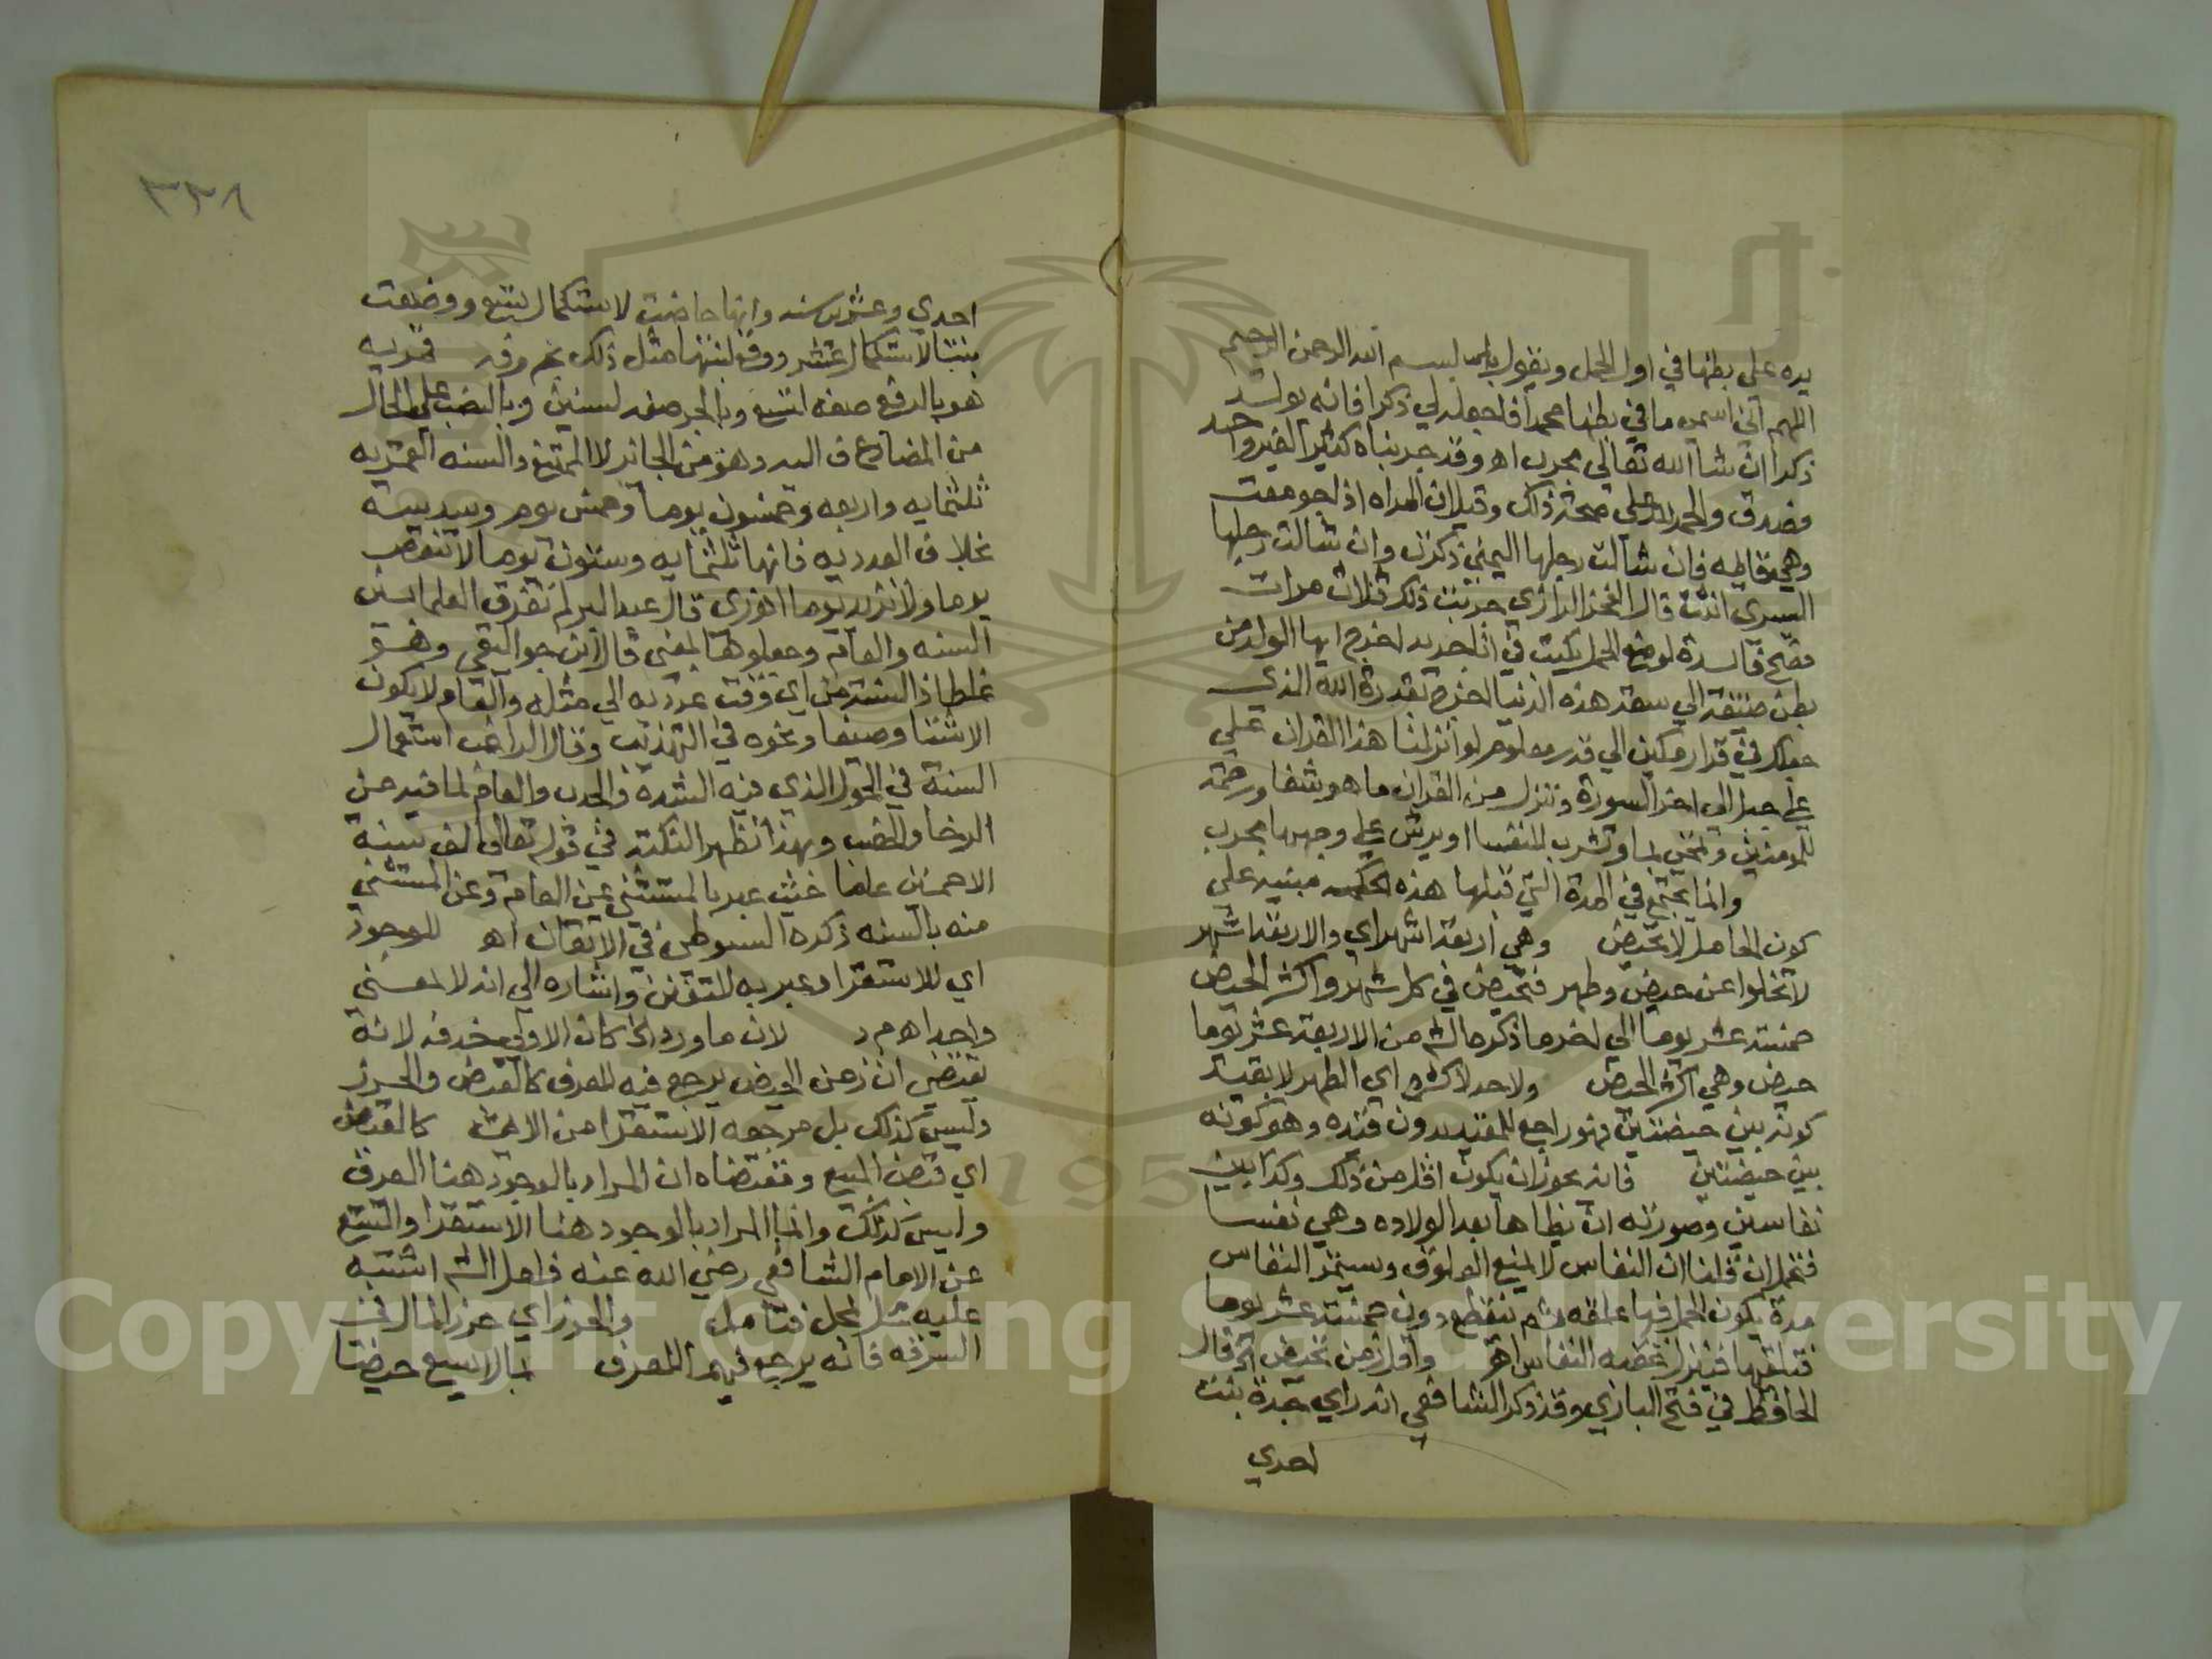 يده على بطنها في اول الحمل ويقول بسم الله الرحمن الرحيم
اللهم اني اسمي ما في بطنها محمدا فاجعله لي ذكرا فانه يولد
ذكرا ان شا الله تعالى مجرب اهـ وقد جربناه كثير الغير واحد
فصدق والحمد لله على صحة ذلك وقيل ان المراه اذا جومعت
وهي قايمه فان شالت رجلها اليمني ذكرت وان شالت رجلها
اليسرى انثت قال الفخر الرازي جربت ذلك ثلاث مرات
فصح فايدة لوضع الحمل يكتب في انا جديد اخرج ايها الولد من
بطن ضيقة الي سعة هذه الدنيا اخرج بقدرة الله الذي
جعلك في قرار مكين الي قدر معلوم لو انزلنا هذا القران علي
علي جبل الي اخر السورة وننزل من القران ما هو شفا ورحمة
للمومنين وتمحي بما وتشرب للنفسا او يرش علي وجهها مجرب
وانما يجتمع في المدة التي قبلها هذه الحكمه مبنيه علي
كون الحامل لا تحيض وهي اربعة اشهر اي والاربعة اشهر
لا تخلوا عن حيض وطهر فتحيض في كل شهر واكثر الحيض
خمسة عشر يوما الي اخر ما ذكره الشم من الاربعة عشر يوما
حيض وهي اكثر الحيض ولا حد لاكثره اي الطهر لا بقيد
كونه بين حيضتين فهو راجع للمقيد بدون قيده وهو كونه
بين حيضتين فانه يجوز ان يكون اقل من ذلك وكذا بين
نفاسين وصورته ان يطاها بعد الولاده وهي نفسا
فتحمل ان قلنا ان النفاس لا يمنع العلوق ويستمر النفاس
مدة يكون الحمل فيها علقه ثم ينقطع دون خمسة عشر يوما
فتلقيها فينزل عقبه النفاس اهـ واقل زمن تحيض الخ قال
الحافظ في فتح الباري وقد ذكر الشافعي انه راي جدة بنت
احدي
٣٣٨
احدي وعشرين سنه وانها حاضت لاستكمال تسع ووضعت
بنتا لاستكمال عشر ووقع لبنتها مثل ذلك قمريه
هو بالرفع صفه لتسع وبالجر صفه لسنين وبالنصب علي الحال
من المضاف اليه وهو من الجائز لا الممتنع والسنه القمريه
ثلثمايه واربعه وخمسون يوما وخمس يوم وسدسه
بخلاف العدديه فانها ثلثمايه وستون يوما لا تنقص
يوما ولا تزيد يوما قال عبد البر لم تفرق العلما بين
السنه والعام وجعلوهما بمعني قال ابن جواليقي وهو
غلط اذ السنة من اي وقت عددته الي مثله والعام لا يكون
الا شتا وصيفا ونحوه في التهذيب وقال الراغب استعمال
السنة في الحول الذي فيه الشدة والجدب والعام لما فيه من
الرخا والخصب وبهذا تظهر النكتة في قوله تعالي الف سنة
الا خمسين عاما حيث عبر بالمستثني عن العام وعن المستثني
منه بالسنه ذكره السيوطي في الاتقان اهـ للوجود
اي للاستقرا وعبر به للتفنن واشاره الي انه لا لمعني
واحد اهـ م د لان ما ورد الخ كان الاولي حذفه لانه
يقتضي ان زمن الحيض يرجع فيه للعرف كالقبض والحرز
وليس كذلك بل مرجعه الاستقرا من الايمة كالقبض
اي قبض المبيع ومقتضاه ان المراد بالوجود هنا العرف
وليس كذلك وانما المراد بالوجود هنا الاستقرا والتتبع
عن الامام الشافعي رضي الله عنه فلعل الشم اشتبه
عليه محل بمحل فتامل والحرز اي حرز المال في
السرقه فانه يرجع فيهما للعرف بما لا يسع حيضا